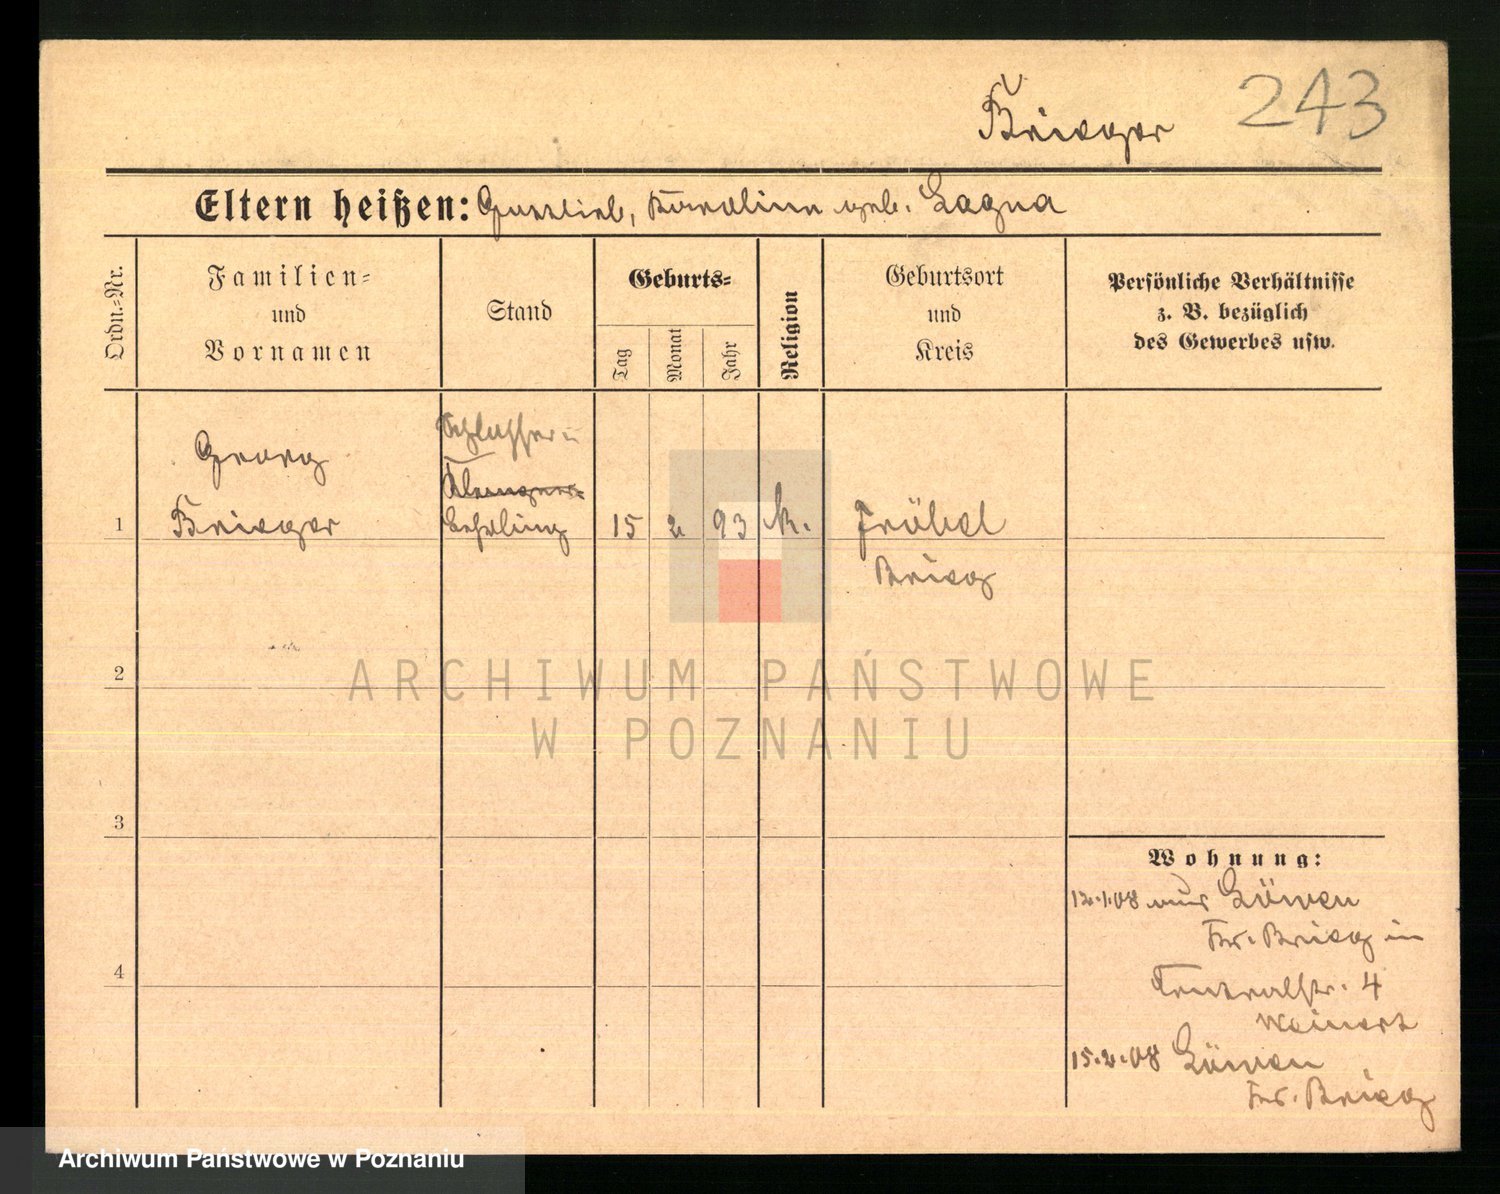 Brieger 243
Eltern heißen: Gottlieb, Karoline geb. Lagna
Ordn.=Nr.
Familien=
und
Vornamen
Stand
Geburts=
Tag
Monat
Jahr
Religion
Geburtsort
und
Kreis
Persönliche Verhältnisse
z. B. bezüglich
des Gewerbes usw.
Schlosser
Georg
1 Brieger Lehrling 15 2 93 k. Fröbel
Brieg
2
ARCHIWUM PAŃSTWOWE
W POZNANIU
3
Wohnung:
12.1.08 aus Löwen
Kr. Brieg in
Zentralstr. 4
Weinert
4
15.2.08 Löwen
Kr. Brieg
Archiwum Państwowe w Poznaniu